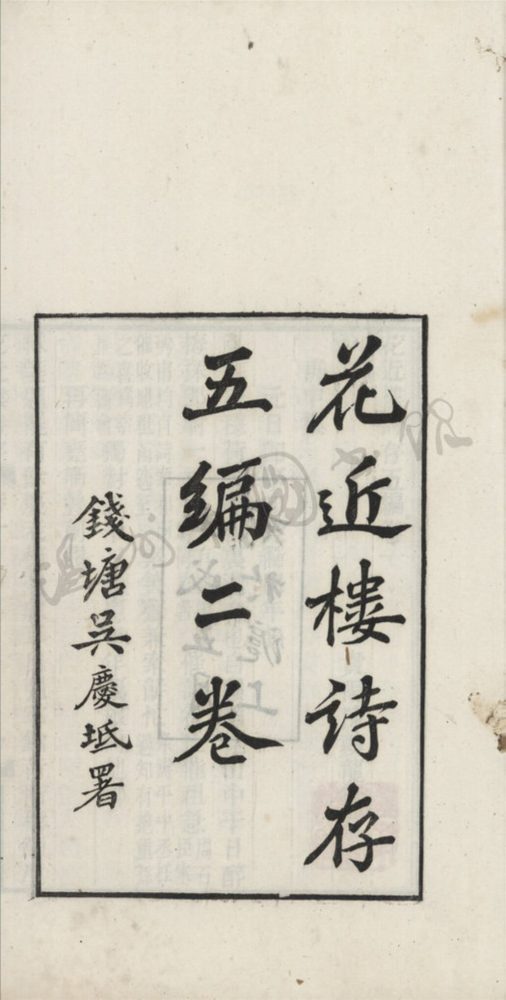 花近樓詩存
五編二卷
錢塘吳慶坻署